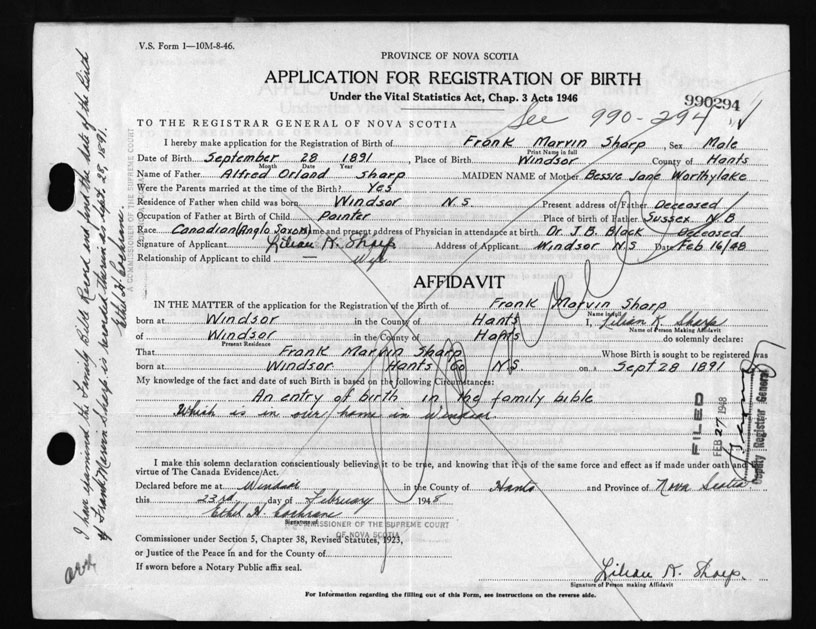 V.S. Form 1—10M-8-46.
PROVINCE OF NOVA SCOTIA
APPLICATION FOR REGISTRATION OF BIRTH
Under the Vital Statistics Act, Chap. 3 Acts 1946
990294
See 990-294
TO THE REGISTRAR GENERAL OF NOVA SCOTIA
I hereby make application for the Registration of Birth of Frank Marvin Sharp Sex Male
Print Name in full
Date of Birth September 28 1891 Place of Birth Windsor County of Hants
Month Date Year
Name of Father Alfred Orland Sharp MAIDEN NAME of Mother Bessie Jane Worthylake
Were the Parents married at the time of the Birth? Yes
Residence of Father when child was born Windsor N.S. Present address of Father Deceased
Occupation of Father at Birth of Child Painter Place of birth of Father Sussex N.B
Race Canadian (Anglo Saxon) Name and present address of Physician in attendance at birth Dr. J.B. Black Deceased
Signature of Applicant Lilian K. Sharp Address of Applicant Windsor N.S Date Feb 16/48
Relationship of Applicant to child — Wife
AFFIDAVIT
IN THE MATTER of the application for the Registration of the Birth of Frank Marvin Sharp
Name in full
born at Windsor in the County of Hants I, Lilian K. Sharp
Name of Person making Affidavit
of Windsor in the County of Hants do solemnly declare:
Present Residence
That Frank Marvin Sharp Whose Birth is sought to be registered was
born at Windsor Hants Co N.S. on a Sept 28 1891
My knowledge of the fact and date of such Birth is based on the following Circumstances:
An entry of birth in the family bible
Which is in our home in Windsor.
FILED
FEB 27 1948
Deputy Registrar General
I make this solemn declaration conscientiously believing it to be true, and knowing that it is of the same force and effect as if made under oath and by
virtue of The Canada Evidence Act.
Declared before me at Windsor in the County of Hants and Province of Nova Scotia
this 23rd day of February 1948
Ethel H. Cochrane
Signature of
A COMMISSIONER OF THE SUPREME COURT
OF NOVA SCOTIA
Commissioner under Section 5, Chapter 38, Revised Statutes, 1923,
or Justice of the Peace in and for the County of
If sworn before a Notary Public affix seal.
Lilian K. Sharp.
Signature of Person making Affidavit
For Information regarding the filling out of this Form, see instructions on the reverse side.
I have examined the Family Bible Record and find the date of the Birth
of Frank Marvin Sharp is recorded therein as Sept. 28, 1891.
Ethel H. Cochrane
A COMMISSIONER OF THE SUPREME COURT